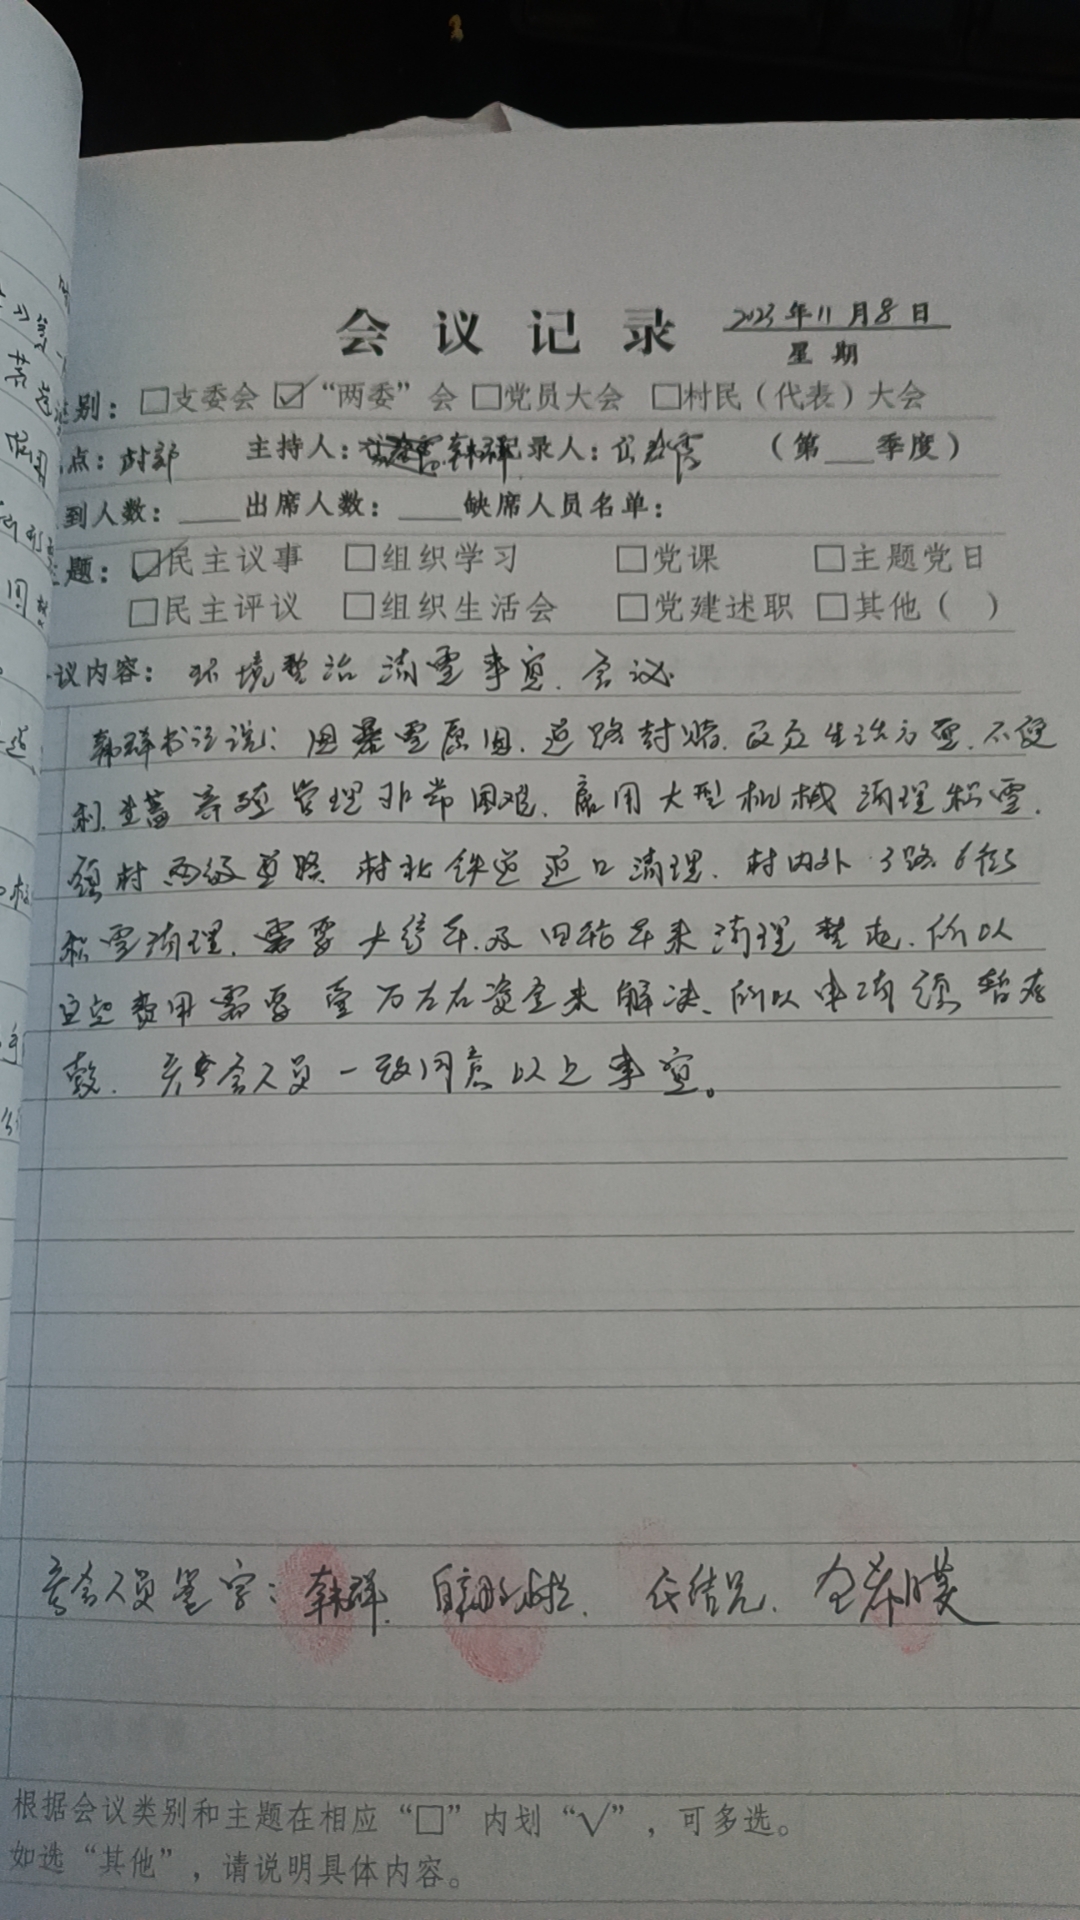 会议记录 2023年11月8日
星期
别：□支委会 ☑“两委”会 □党员大会 □村民（代表）大会
点：村部 主持人：韩群 记录人： （第___季度）
到人数：____出席人数：____缺席人员名单：
题：☑民主议事 □组织学习 □党课 □主题党日
□民主评议 □组织生活会 □党建述职 □其他（ ）
议内容：环境整治清雪事宜会议
韩群书记说：因暴雪原因，道路封赌，百众生活方面，不便
利，牲畜养殖管理非常困难，雇用大型机械清理积雪，
镇村两级道路，村北铁道道口清理，村内外3路6街
积雪清理，需要大铲车及四轮车来清理整屯，所以
这些费用需要壹万左右资金来解决，所以申请镇
款，与会人员一致同意以上事宜。
与会人员签字：韩群
根据会议类别和主题在相应“□”内划“√”，可多选。
如选“其他”，请说明具体内容。